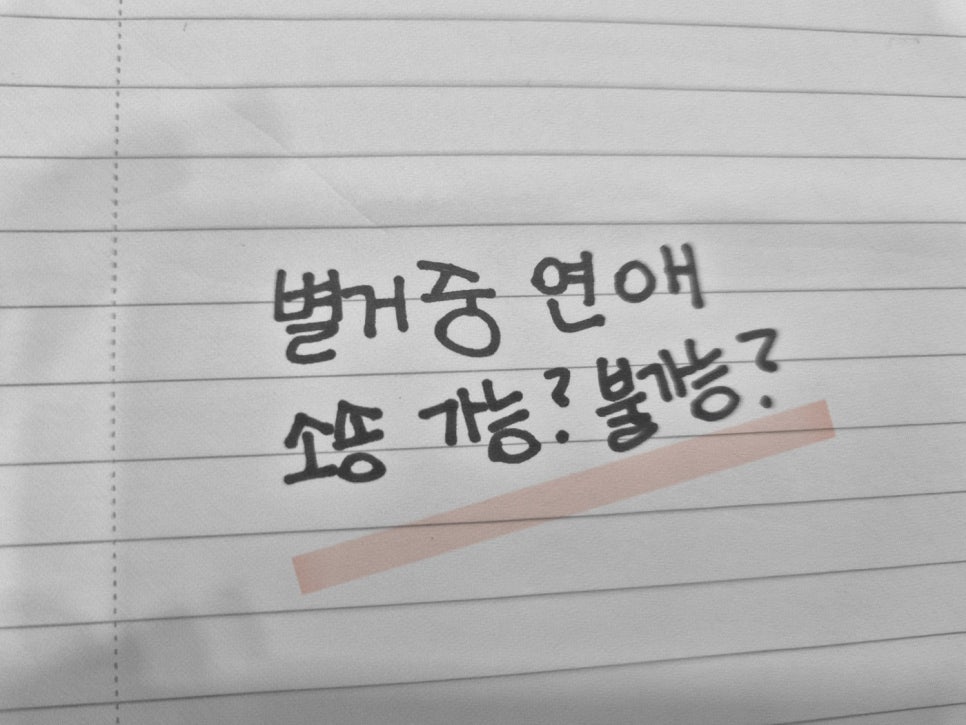 별거중 연애
소송 가능? 불가능?